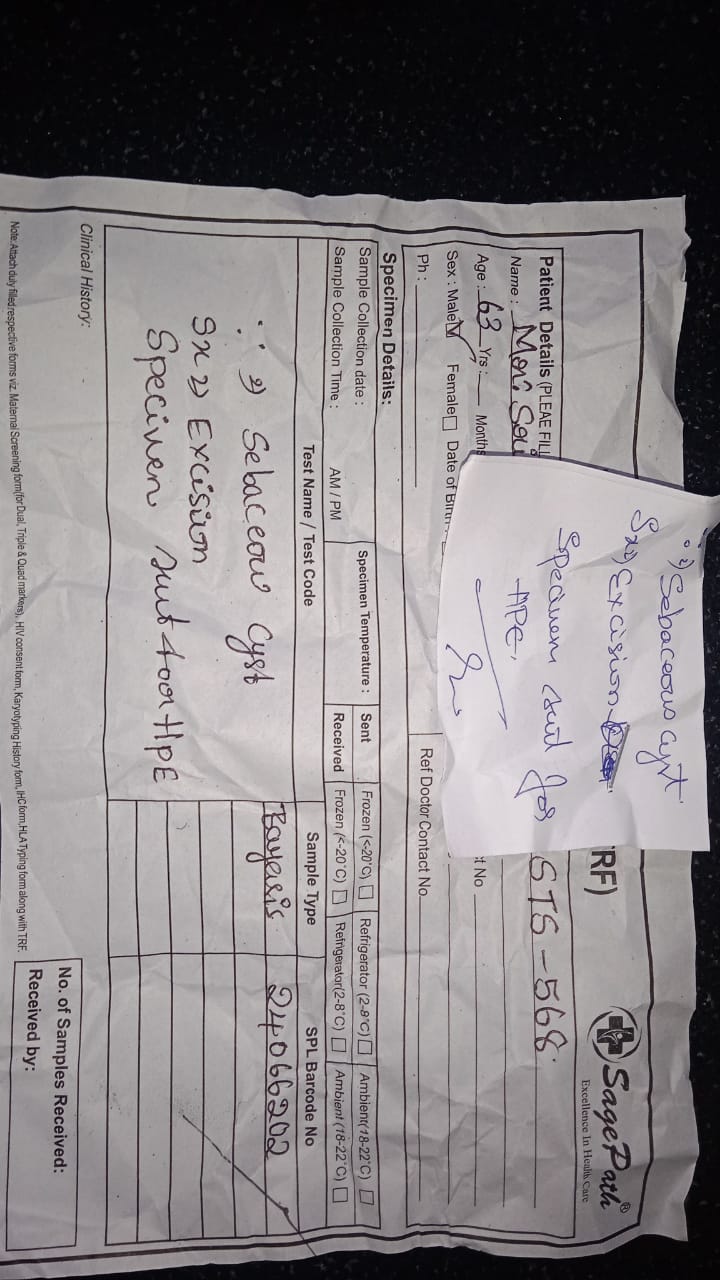 SagePath®
Excellence In Health Care
TRF)
Patient Details (PLEAE FILL
STS-568
Name :
Age : 63 Yrs : Months
ct No
Sex : Male Female Date of Birth
Ph :
Ref Doctor Contact No
i) Sebaceous cyst
Sx2) Excision
Specimen sent for
HPE.
Specimen Details:
Sample Collection date : Specimen Temperature : Sent Frozen (<-20°C) Refrigerator (2-8°C) Ambient(18-22°C)
Sample Collection Time : AM / PM Received Frozen (<-20°C) Refrigerator(2-8°C) Ambient (18-22°C)
Test Name / Test Code Sample Type SPL Barcode No
Sebaceous Cyst 24066202
Sx2) Excision
Specimen sent foor HPE
Clinical History:
No. of Samples Received:
Received by:
Note:Attach duly filled respective forms viz. Maternal Screening form(for Dual, Triple & Quad markers), HIV consent form, Karyotyping History form, IHC form,HLA Typing form along with TRF.